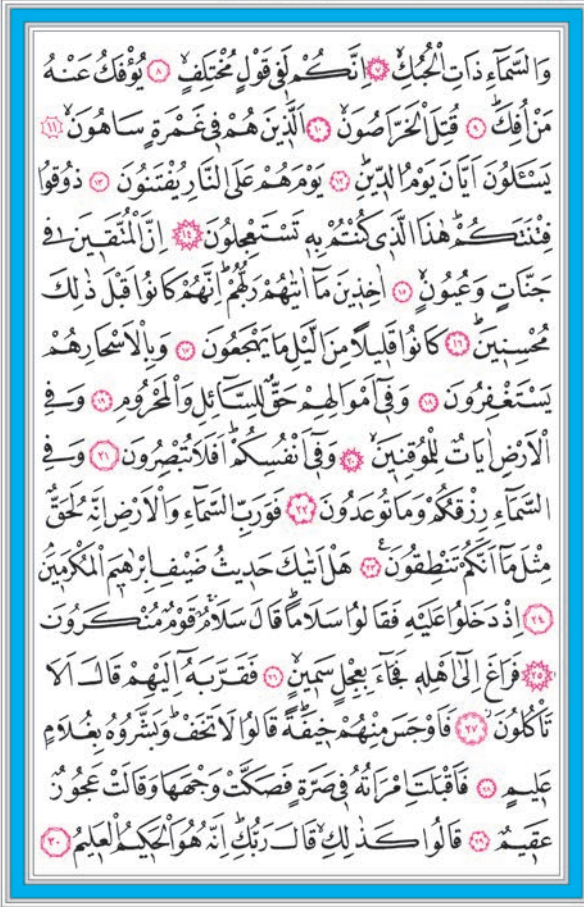 وَالسَّمَٓاءِ ذَاتِ الْحُبُكِۙ ﴿٧﴾ اِنَّكُمْ لَف۪ي قَوْلٍ مُخْتَلِفٍۙ ﴿٨﴾ يُؤْفَكُ عَنْهُ
مَنْ اُفِكَۜ ﴿٩﴾ قُتِلَ الْخَرَّاصُونَۙ ﴿١٠﴾ اَلَّذ۪ينَ هُمْ ف۪ي غَمْرَةٍ سَاهُونَۙ ﴿١١﴾
يَسْـَٔلُونَ اَيَّانَ يَوْمُ الدّ۪ينِۜ ﴿١٢﴾ يَوْمَ هُمْ عَلَى النَّارِ يُفْتَنُونَ ﴿١٣﴾ ذُوقُوا
فِتْنَتَكُمْۜ هٰذَا الَّذ۪ي كُنْتُمْ بِه۪ تَسْتَعْجِلُونَ ﴿١٤﴾ اِنَّ الْمُتَّق۪ينَ ف۪ي
جَنَّاتٍ وَعُيُونٍۙ ﴿١٥﴾ اٰخِذ۪ينَ مَٓا اٰتٰيهُمْ رَبُّهُمْۜ اِنَّهُمْ كَانُوا قَبْلَ ذٰلِكَ
مُحْسِن۪ينَۜ ﴿١٦﴾ كَانُوا قَل۪يلًا مِنَ الَّيْلِ مَا يَهْجَعُونَ ﴿١٧﴾ وَبِالْاَسْحَارِ هُمْ
يَسْتَغْفِرُونَ ﴿١٨﴾ وَف۪ٓي اَمْوَالِهِمْ حَقٌّ لِلسَّٓائِلِ وَالْمَحْرُومِ ﴿١٩﴾ وَفِي
الْاَرْضِ اٰيَاتٌ لِلْمُوقِن۪ينَۙ ﴿٢٠﴾ وَف۪ٓي اَنْفُسِكُمْۜ اَفَلَا تُبْصِرُونَ ﴿٢١﴾ وَفِي
السَّمَٓاءِ رِزْقُكُمْ وَمَا تُوعَدُونَ ﴿٢٢﴾ فَوَرَبِّ السَّمَٓاءِ وَالْاَرْضِ اِنَّهُ لَحَقٌّ
مِثْلَ مَٓا اَنَّكُمْ تَنْطِقُونَ۟ ﴿٢٣﴾ هَلْ اَتٰيكَ حَد۪يثُ ضَيْفِ اِبْرٰه۪يمَ الْمُكْرَم۪ينَۢ
﴿٢٤﴾ اِذْ دَخَلُوا عَلَيْهِ فَقَالُوا سَلَامًاۜ قَالَ سَلَامٌۚ قَوْمٌ مُنْكَرُونَ
﴿٢٥﴾ فَرَاغَ اِلٰٓى اَهْلِه۪ فَجَٓاءَ بِعِجْلٍ سَم۪ينٍۙ ﴿٢٦﴾ فَقَرَّبَهُٓ اِلَيْهِمْ قَالَ اَلَا
تَأْكُلُونَۘ ﴿٢٧﴾ فَاَوْجَسَ مِنْهُمْ خ۪يفَةًۜ قَالُوا لَا تَخَفْۜ وَبَشَّرُوهُ بِغُلَامٍ
عَل۪يمٍ ﴿٢٨﴾ فَاَقْبَلَتِ امْرَاَتُهُ ف۪ي صَرَّةٍ فَصَكَّتْ وَجْهَهَا وَقَالَتْ عَجُوزٌ
عَق۪يمٌ ﴿٢٩﴾ قَالُوا كَذٰلِكِۙ قَالَ رَبُّكِۜ اِنَّهُ هُوَ الْحَك۪يمُ الْعَل۪يمُ ﴿٣٠﴾